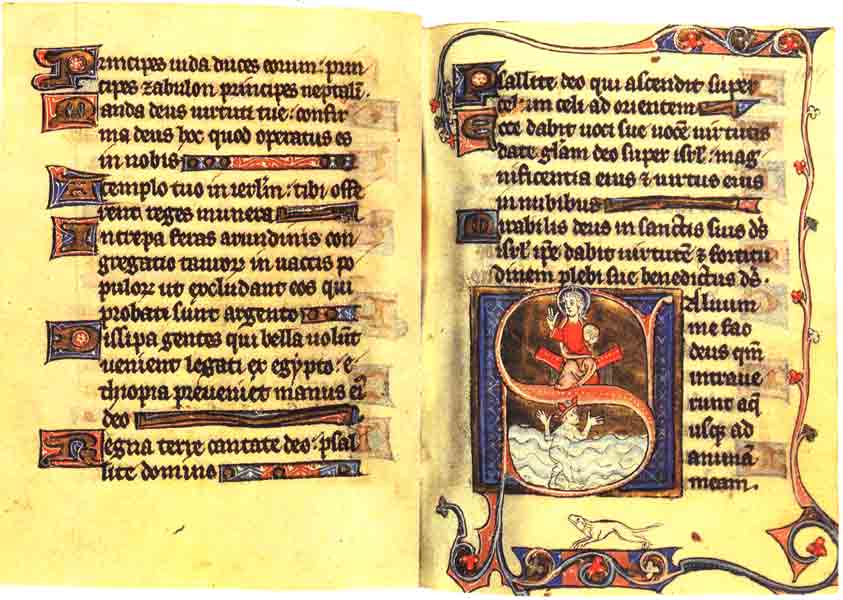 Principes iuda duces eorum: prin
cipes zabulon principes neptali.
Manda deus uirtuti tue: confir
ma deus hoc quod operatus es
in nobis
A templo tuo in ierlm̄: tibi offe
rent reges munera
Increpa feras arundinis con
gregatio tauroꝝ in uaccis po
puloꝝ ut excludant eos qui
probati sunt argento
Dissipa gentes qui bella uolūt
uenient legati ex egypto: e
thiopia preueniet manus eī
deo
Regna terre cantate deo: psal
lite domino
Psallite deo qui ascendit super
celum celi ad orientem
Ecce dabit uoci sue uocē uirtutis
date glām deo super isrl̄: mag
nificentia eius ⁊ uirtus eius
in nubibus
Mirabilis deus in sanctis suis ds̄
isrl̄ ip̄e dabit uirtutē ⁊ fortitu
dinem plebi sue benedictus ds̄.
Saluum
me fac
deus qm̄
intraue
runt aq̄
usq; ad
animā
meam.